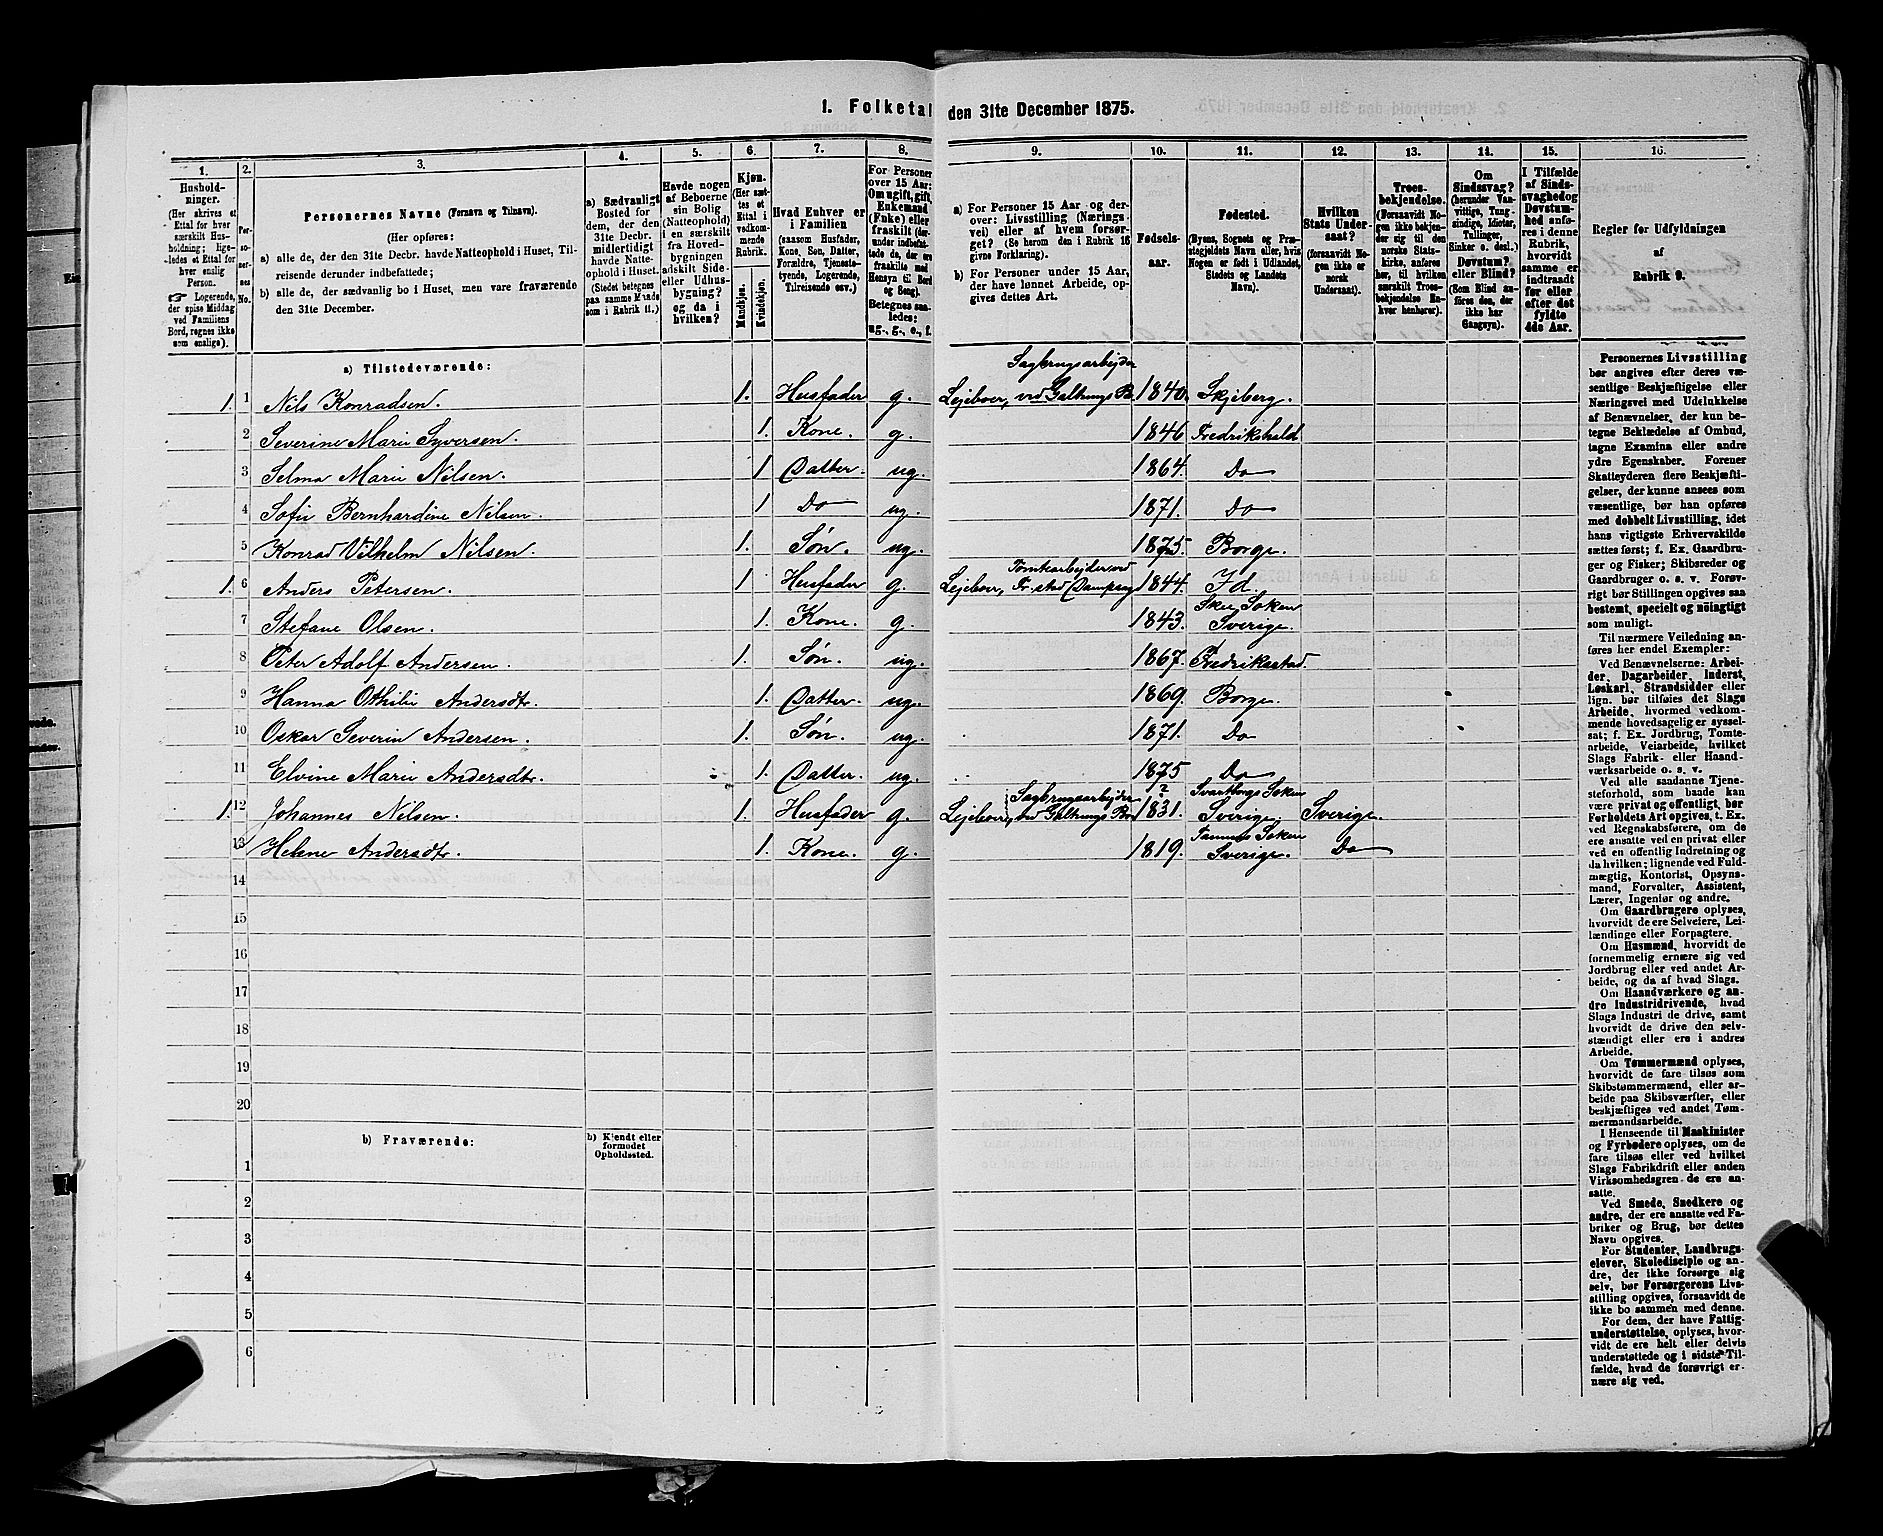 1. Folketal den 31te December 1875.
1. 2. 3. 4. 5. 6. 7. 8. 9. 10. 11. 12. 13. 14. 15. 16.
Hushold-
ninger.
(Her skrives et
Ettal for hver
særskilt Hus-
holdning; lige-
ledes et Ettal for
hver enslig
Person.
☞ Logerende,
der spise Middag
ved Familiens
Bord, regnes ikke
som enslige).
Per-
so-
ner-
nes
No.
Personernes Navne (Fornavn og Tilnavn).
(Her opføres:
a) alle de, der den 31te Decbr. havde Natteophold i Huset, Til-
reisende derunder indbefattede;
b) alle de, der sædvanlig bo i Huset, men vare fraværende
den 31te December.
a) Sædvanligt
Bosted for
dem, der den
31te Decbr.
midlertidigt
havde Natte-
ophold i Huset.
(Stedet betegnes
paa samme Maade
som i Rubrik 11.)
Havde nogen
af Beboerne
sin Bolig
(Natteophold)
i en særskilt
fra Hoved-
bygningen
adskilt Side-
eller Udhus-
bygning?
og da i
hvilken?
Kjøn.
(Her sæt-
tes et
Ettal i
vedkom-
mende
Rubrik.
Mandkjøn.
Kvindekjøn.
Hvad Enhver er
i Familien
(saasom Husfader,
Kone, Søn, Datter,
Forældre, Tjeneste-
tyende, Logerende,
Tilreisende osv.)
For Personer
over 15 Aar:
Om ugift, gift,
Enkemand
(Enke) eller
fraskilt (der-
under indbefat-
tede de, der ere
fraskilte med
Hensyn til Bord
og Seng).
Betegnes saa-
ledes:
ug., g., e., f.
a) For Personer 15 Aar og der-
over: Livsstilling (Nærings-
vei) eller af hvem forsør-
get? (Se herom den i Rubrik 16
givne Forklaring).
b) For Personer under 15 Aar,
der have lønnet Arbeide, op-
gives dettes Art.
Fødsels-
aar.
Fødested.
(Byens, Sognets og Præ-
stegjeldets Navn eller, hvis
Nogen er født i Udlandet,
Stedets og Landets
Navn).
Hvilken
Stats Under-
saat?
(forsaavidt No-
gen ikke er
norsk
Undersaat).
Troes-
bekjendelse.
(Forsaavidt No-
gen ikke bekjen-
der sig til den
norske Stats-
kirke, anføres
her, til hvilken
særskilt Troes-
bekjendelse En-
hver henhører).
Om
Sindssvag?
(herunder Van-
vittige, Tung-
sindige, Idioter,
Tullinger,
Sinker o. desl.).
Døvstum?
eller Blind?
(Som Blind an-
føres den, der
ikke har
Gangsyn).
I Tilfælde
af Sinds-
svaghed og
Døvstum-
hed anfø-
res i denne
Rubrik,
hvorvidt
samme er
indtraadt
før eller
efter det
fyldte
4de Aar.
Regler for Udfyldningen
af
Rubrik 9.
a) Tilstedeværende:
Sagbrugsarbejder
1. 1 Nils Konradsen. 1. Husfader g. Lejeboer, ved Galtungs B. 1840. Skjeberg.
2 Severine Marie Syversen. 1. Kone. g. 1846 Fredrikshald
3 Selma Marie Nilsen. 1 Datter. ug. 1864. Do
4 Sofie Bernhardine Nilsen. 1 Do ug. 1871. Do
5 Konrad Vilhelm Nilsen. 1. Søn. ug. 1875. Borge.
Tomtearbejder ved
1. 6 Anders Petersen. 1 Husfader g. Lejeboer, Fr.stad Dampsag 1844. Id.
Skee Soken
7 Stefane Olsen. 1. Kone. g. 1843. Sverige.
8 Peter Adolf Andersen. 1. Søn. ug. 1867. Fredrikstad.
9 Hanna Othilie Andersdtr. 1. Datter. ug. 1869. Borge.
10 Oskar Severin Andersen. 1. Søn. ug. 1871. Do
11 Elvine Marie Andersdtr. 1. Datter. ug. 1875 Do
Sagbrugsarbejder ? Svartborgs Soken
1. 12 Johannes Nilsen. 1. Husfader g. Lejeboer, ved Galtungs Br. 1831. Sverige. Sverige.
Tanums Soken
13 Helene Andersdtr. 1. Kone. g. 1819. Sverige. Do
14
15
16
17
18
19
20
b) Fraværende:
b) Kjendt eller
formodet
Opholdssted.
1
2
3
4
5
6
Personernes Livsstilling
bør angives efter deres væ-
sentlige Beskjæftigelse eller
Næringsvei med Udelukkelse
af Benævnelser, der kun be-
tegne Beklædelse af Ombud,
tagne Examina eller andre
ydre Egenskaber. Forener
Skatteyderen flere Beskjæfti-
gelser, der kunne ansees som
væsentlige, bør han opføres
med dobbelt Livsstilling, idet
hans vigtigste Erhvervskilde
sættes først; f. Ex. Gaardbru-
ger og Fisker; Skibsreder og
Gaardbruger o. s. v. Forøv-
rigt bør Stillingen opgives saa
bestemt, specielt og nøiagtigt
som muligt.
Til nærmere Veiledning an-
føres her endel Exempler:
Ved Benævnelserne: Arbei-
der, Dagarbeider, Inderst,
Løskarl, Strandsidder eller
lign. bør tilføies det Slags
Arbeide, hvormed vedkom-
mende hovedsagelig er syssel-
sat; f. Ex. Jordbrug, Tomte-
arbeide, Veiarbeide, hvilket
Slags Fabrik- eller Haand-
værksarbeide o. s. v.
Ved alle saadanne Tjene-
steforhold, som baade kan
være privat og offentligt, bør
Forholdets Art opgives, t. Ex.
ved Regnskabsførere, om de
ere ansatte ved en privat eller
ved en offentlig Indretning og
da hvilken; lignende ved Fuld-
mægtig, Kontorist, Opsyns-
mand, Forvalter, Assistent,
Lærer, Ingeniør og andre.
Om Gaardbrugere oplyses,
hvorvidt de ere Selveiere, Lei-
lændinge eller Forpagtere.
Om Husmænd, hvorvidt de
fornemmelig ernære sig ved
Jordbrug eller ved andet Ar-
beide, og da af hvad Slags.
Om Haandværkere og an-
dre Industridrivende, hvad
Slags Industri de drive, samt
hvorvidt de drive den selv-
stændigt eller ere i andres
Arbeide.
Om Tømmermænd oplyses,
hvorvidt de fare tilsøs som
Skibstømmermænd, eller ar-
beide paa Skibsværfter, eller
beskjæftiges ved andet Tøm-
mermandsarbeide.
I Henseende til Maskinister
og Fyrbødere oplyses, om de
fare tilsøs eller ved hvilket
Slags Fabrikdrift eller anden
Virksomhedsgren de ere an-
satte.
Ved Smede, Snedkere og
andre, der ere ansatte ved Fa-
briker og Brug, bør dettes
Navn opgives.
For Studenter, Landbrugs-
elever, Skoledisciple og an-
dre, der ikke forsørge sig
selv, bør Forsørgerens Livs-
stilling opgives, forsaavidt de
ikke bo sammen med denne.
For dem, der have Fattig-
understøttelse, oplyses, hvor-
vidt de ere helt eller delvis
understøttede og i sidste Til-
fælde, hvad de forøvrigt er-
nære sig ved.